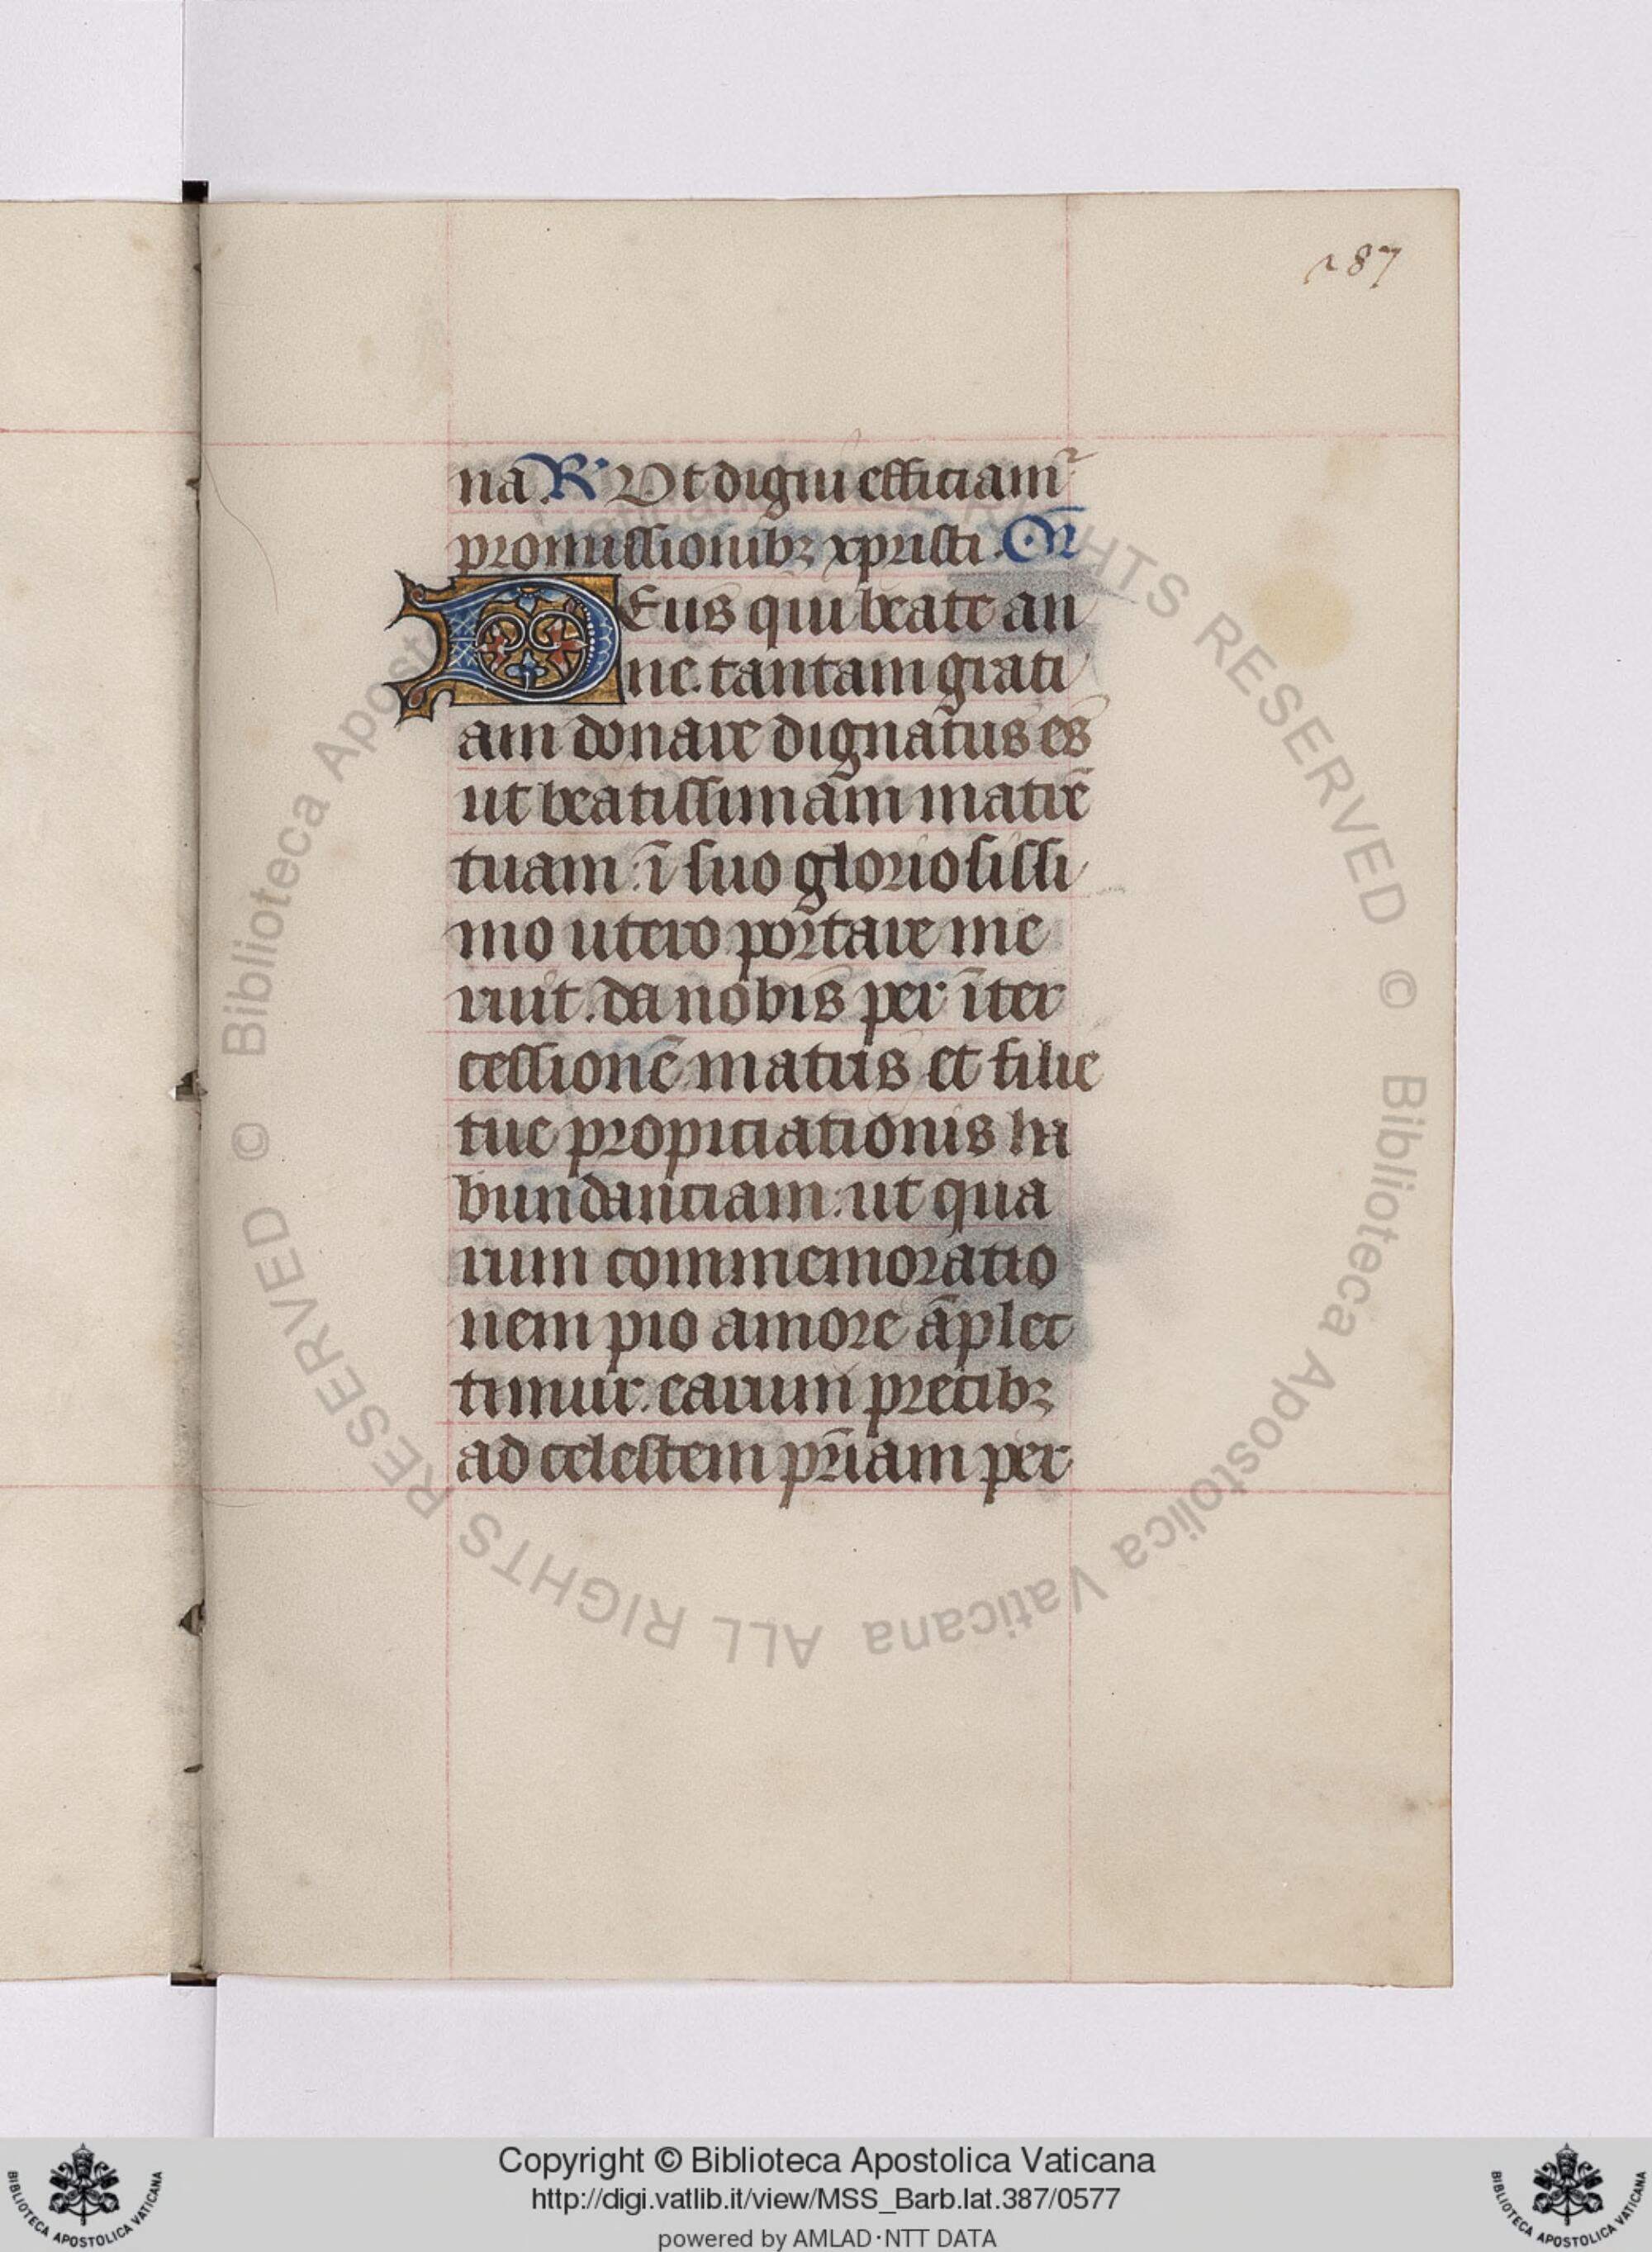 287
na. R' Ut digni efficiam²
promissionibꝫ xpristi. Or̄
Deus qui beate an
ne. tantam grati
am donare dignatus es
ut beatissimam matrē
tuam: ī suo gloriosissi
mo utero portare me
ruit. da nobis per īter
cessionē matris et filie
tue propiciationis ha
bundanciam: ut qua
rum commemoratio
nem pio amore āplec
timur. earum precibꝫ
ad celestem pr̄iam per
© Biblioteca Apostolica Vaticana ALL RIGHTS RESERVED © Biblioteca Apostolica Vaticana ALL RIGHTS RESERVED
Copyright © Biblioteca Apostolica Vaticana
http://digi.vatlib.it/view/MSS_Barb.lat.387/0577
powered by AMLAD·NTT DATA
BIBLIOTECA APOSTOLICA VATICANA
BIBLIOTECA APOSTOLICA VATICANA